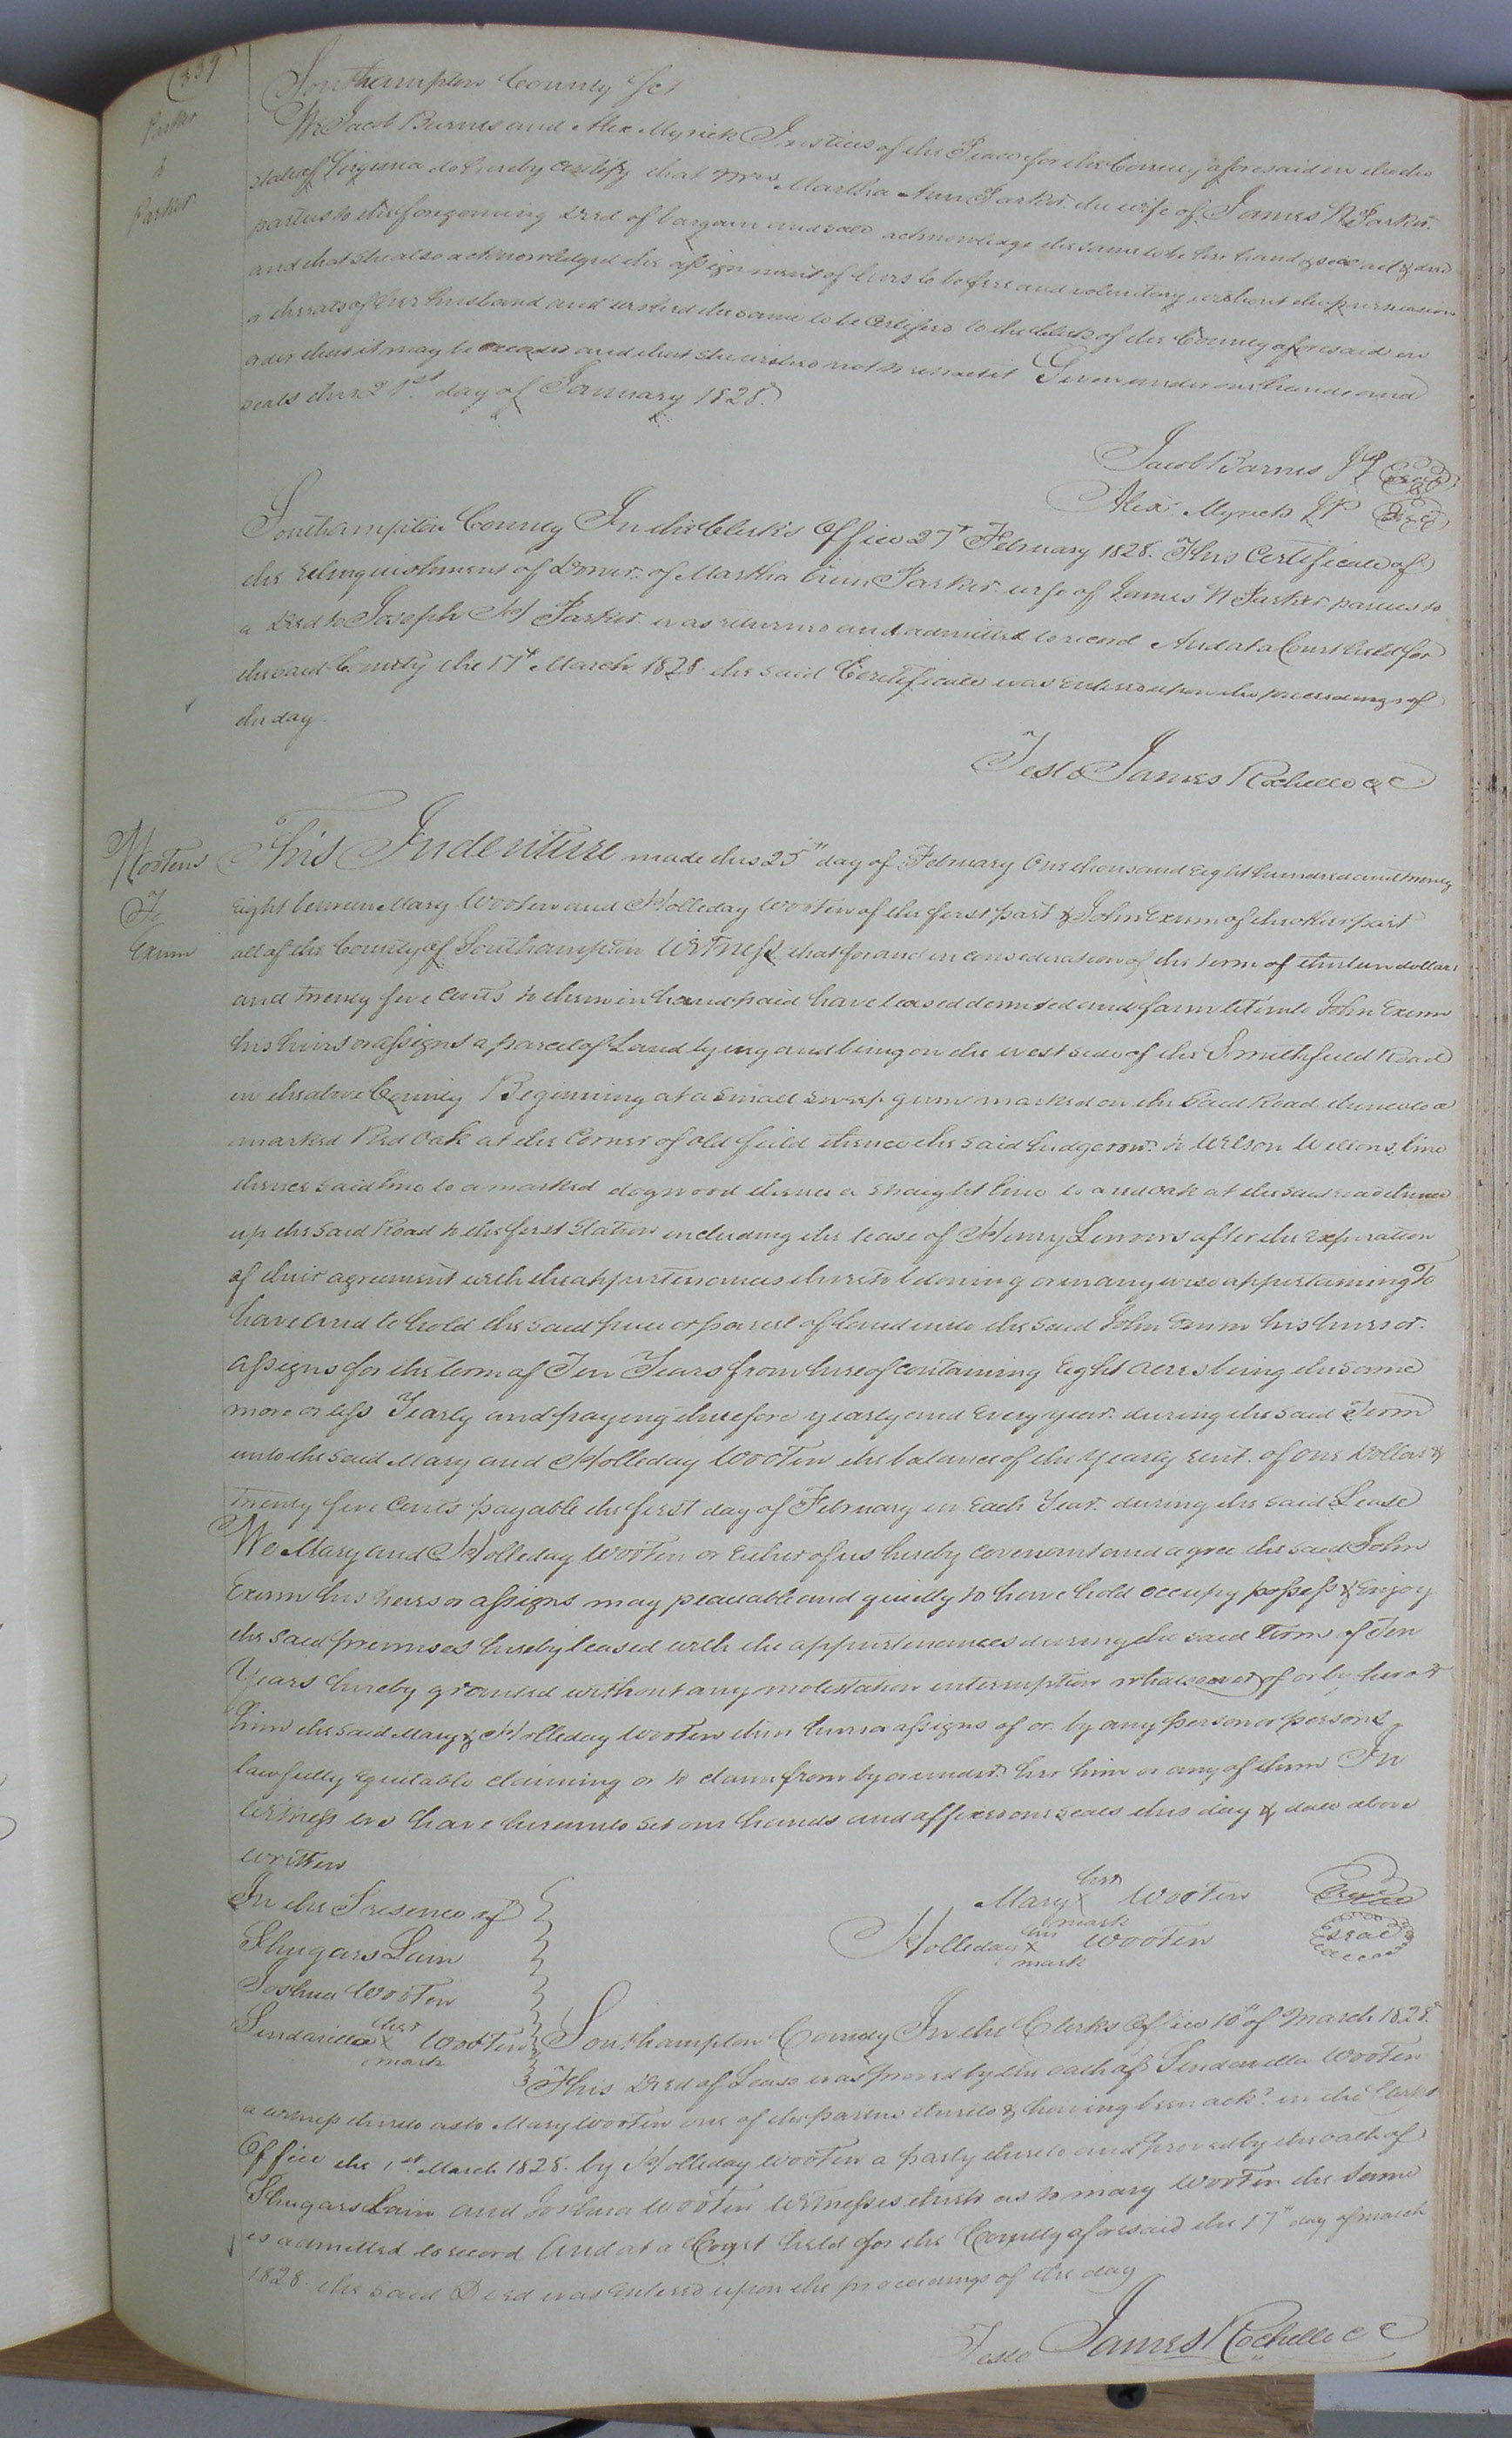 (339)
Parker
to
Parker
Southampton County Sct
We Jacob Barnes and Alex Myrick Justices of the Peace for the County aforesaid in the
State of Virginia do hereby certify that Mrs Martha Ann Parker the wife of James N Parker
parties to the foregoing deed of bargain and sale acknowledge the same to be her hand & seal act & deed
and that she also acknowledged the assignment of hers to be free and voluntary without the persuasion
or threats of her husband and wished the same to be Certified to the Clerk of the County aforesaid in
order that it may be recorded and that she wished not to retract it Given under our hands and
seals this 21st day of January 1828.
Jacob Barnes JP Seal
Alex: Myrick JP Seal
Southampton County In the Clerk's Office 27th February 1828. This Certificate of
the relinquishment of Dower of Martha Ann Parker wife of James N Parker parties to
a Deed to Joseph H Parker was returned and admitted to record And at a Court held for
the said County the 17th March 1828 the said Certificate was Entered upon the proceedings of
the day.
Teste James Rochelle C C
Wootens
To
Exum
This Indenture made this 25th day of February One thousand Eight hundred and twenty
Eight between Mary Wooten and Holleday Wooten of the first part & John Exum of the other part
all of the County of Southampton Witness that for and in consideration of the term of thirteen dollars
and twenty five Cents to them in hand paid have leased demised and farm let unto John Exum
his heirs or assigns a parcel of Land lying and being on the west side of the Smithfield Road
in the above County Beginning at a small sweet gum marked on the said Road thence to a
marked Red Oak at the Corner of old feild thence the said hedgerow to Wilson Wellons line
thence said line to a marked dogwood thence a straight line to a red oak at the said road thence
up the said Road to the first Station including the lease of Henry Lemons after the Expiration
of their agreement with the appurtenances thereto beloning or in any wise appertaining To
have and to hold the said piece or parcel of land unto the said John Exum his heirs or
assigns for the term of Ten Years from hereof containing Eight acres being the same
more or less Yearly and paying therefore yearly and Every year during the said Term
unto the said Mary and Holleday Wooten the balance of the yearly rent of one Dollar &
twenty five Cents payable the first day of February in Each Year during the said Lease
We Mary and Holleday Wooten or Either of us hereby covenant and agree the said John
Exum his heirs or assigns may peaceable and quietly to have hold occupy possess & Enjoy
the said premises hereby leased with the appurtenances during the said Term of Ten
Years hereby granted without any molestation interruption whatsoever of or by her or
him the said Mary & Holleday Wooten their heirs or assigns of or by any person or persons
lawfully Equitable claiming or to claim from by or under her him or any of them In
Witness we have hereunto set our hands and affixed our seals this day & date above
written
In the Presence of
Shugars Lain
Joshua Wooten
Lindarilla her x mark Wooten
Mary her x mark Wooten Seal
Holleday his x mark Wooten Seal
Southampton County In the Clerks Office 10th of March 1828.
This Deed of Lease was proved by the oath of Lindarilla Wooten
a witness thereto as to Mary Wooten one of the parties thereto & having been ackd in the Clerks
Office the 1st March 1828. by Holleday Wooten a party thereto and proved by the oath of
Shugars Lain and Joshua Wooten Witnesses thereto as to Mary Wooten the same
is admitted to record And at a Court held for the County aforesaid the 17th day of March
1828. the said Deed was Entered upon the proceedings of the day
Teste James Rochelle C C